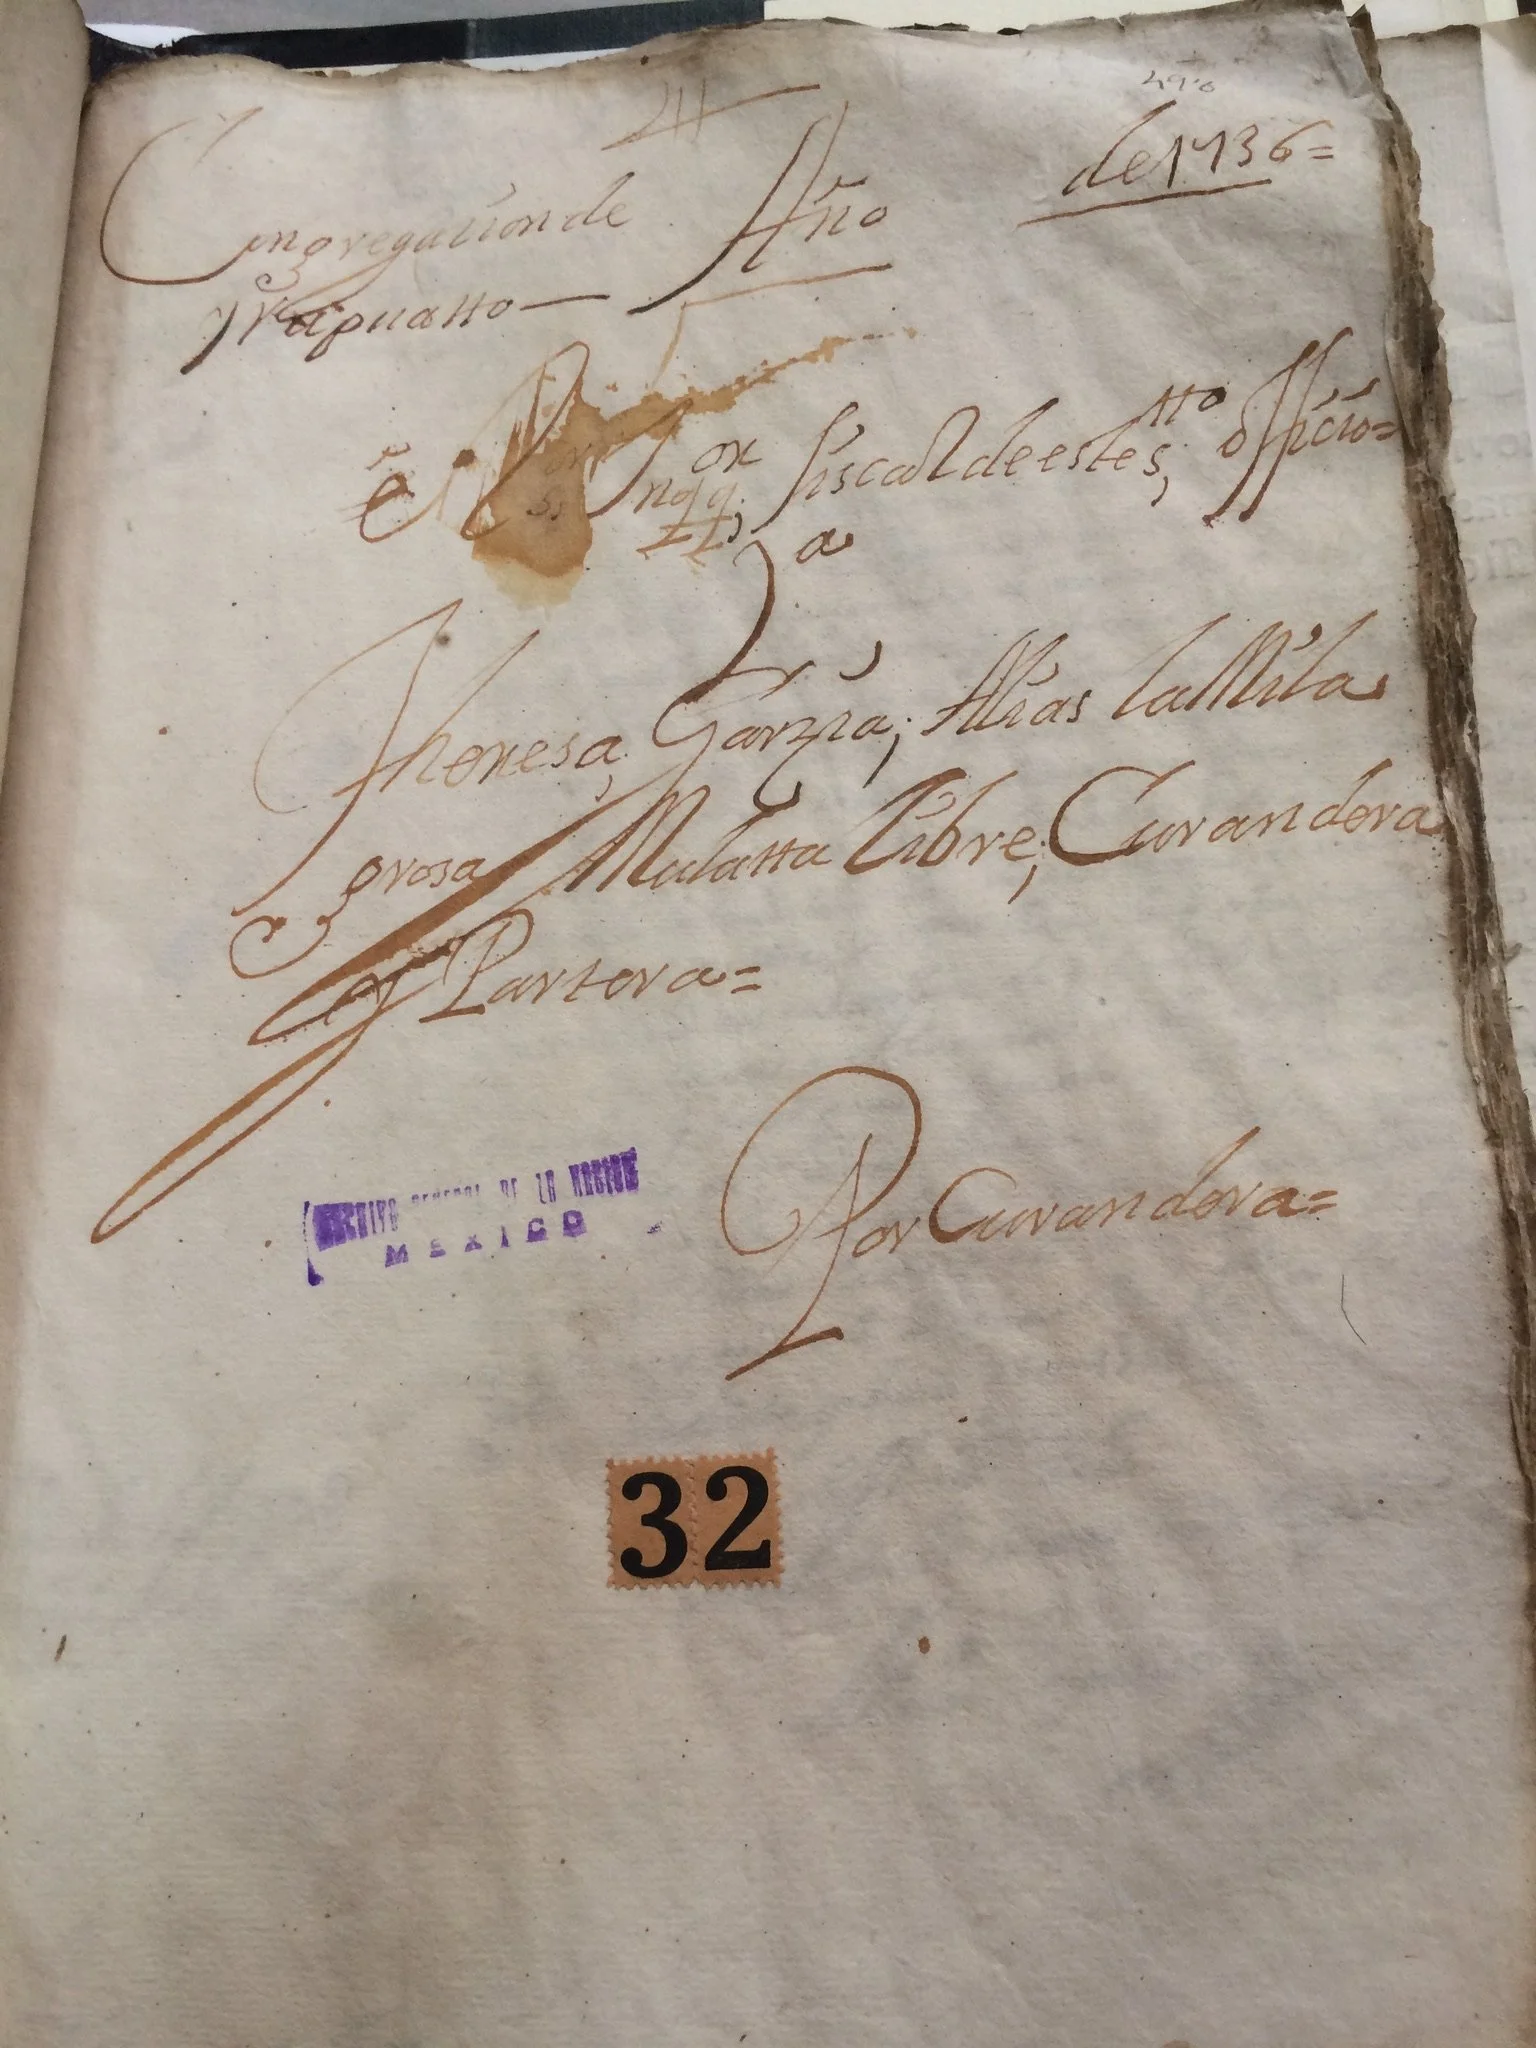 Congregacion de Año de 1736=
yrapuatto—
El S.or Inqq.or fiscal de este S.tto officio=
a
Theresa Garzia; Alias la Mila
grosa Mulatta Libre; Curandera
y Partera=
Por Curandera=
ARCHIVO GENERAL DE LA NACION
MEXICO
32